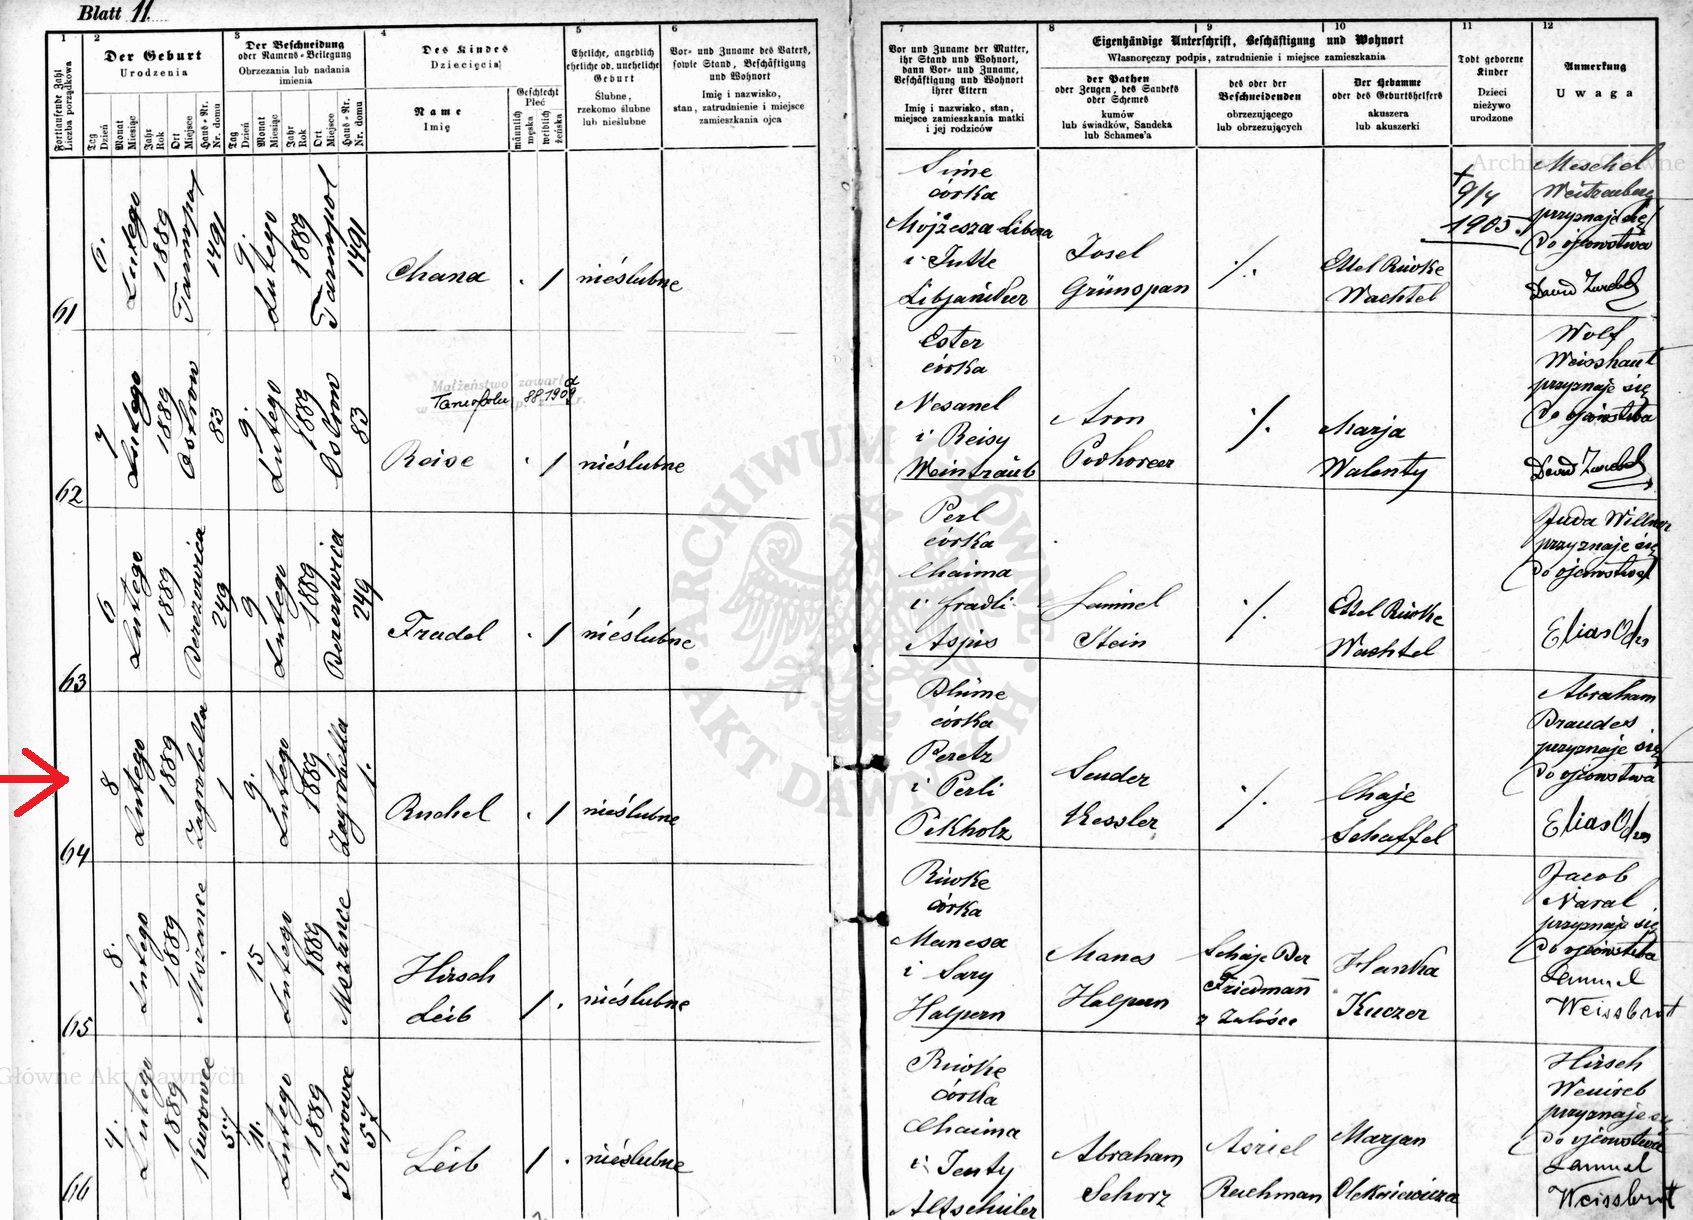 Blatt 11.
1
2
3
4
5
6
7
8
9
10
11
12
Fortlaufende Zahl
Liczba porządkowa
Der Geburt
Urodzenia
Tag
Dzień
Monat
Miesiąc
Jahr
Rok
Ort
Miejsce
Haus-Nr.
Nr. domu
Der Beschneidung
oder Namens-Beilegung
Obrzezania lub nadania
imienia
Tag
Dzień
Monat
Miesiąc
Jahr
Rok
Ort
Miejsce
Haus-Nr.
Nr. domu
Des Kindes
Dziecięcia
Name
Imię
Geschlecht
Płeć
männlich
męska
weiblich
żeńska
Eheliche, angeblich
eheliche od. uneheliche
Geburt
Ślubne,
rzekomo ślubne
lub nieślubne
Vor- und Zuname des Vaters,
sowie Stand, Beschäftigung
und Wohnort
Imię i nazwisko,
stan, zatrudnienie i miejsce
zamieszkania ojca
Vor und Zuname der Mutter,
ihr Stand und Wohnort,
dann Vor- und Zuname,
Beschäftigung und Wohnort
ihrer Eltern
Imię i nazwisko, stan,
miejsce zamieszkania matki
i jej rodziców
Eigenhändige Unterschrift, Beschäftigung und Wohnort
Własnoręczny podpis, zatrudnienie i miejsce zamieszkania
der Pathen
oder Zeugen, des Sandeks
oder Schemes
kumów
lub świadków, Sandeka
lub Schames'a
des oder der
Beschneidenden
obrzezującego
lub obrzezujących
Der Hebamme
oder des Geburtshelfers
akuszera
lub akuszerki
Todt geborene
Kinder
Dzieci
nieżywo
urodzone
Anmerkung
Uwaga
61
6.
Lutego
1889
Tarnopol
1491
9.
Lutego
1889
Tarnopol
1491
Chana
. /
nieślubne
Sime
córka
Mojżesza Libera
i Jutte
Josel
Grünspan
./.
Ettel Riwke
Wachtel
+
9/4
1905.
Meschel
Weitzenberg
przyznaje się
do ojcowstwa
62
7
Lutego
1889
Ostrow
83
9.
Lutego
1889
Ostrow
83
Małżeństwo zawarto
Tarnopolu 88 1909
Reise
. /
nieślubne
Ester
córka
Nesanel
i Reisy
Weintraub
Aron
Podhorcer
./.
Marja
Walenty
Wolf
Weisshaut
przyznaje się
do ojcowstwa
63
6
Lutego
1889
Berezowica
249
9
Lutego
1889
Berezowica
249
Fradel
. /
nieślubne
Perl
córka
Chaima
i Fradli
Aspis
Samuel
Stein
./.
Ettel Riwke
Wachtel
Juda Willner
przyznaje się
do ojcowstwa
64
8
Lutego
1889
Zagrobella
1
9.
Lutego
1889
Zagrobella
1.
Ruchel
. /
nieślubne
Blüme
córka
Peretz
i Perli
Pekholz
Sender
Kessler
./.
Chaje
Schaffel
Abraham
Braudes
przyznaje się
do ojcowstwa
65
8.
Lutego
1889
Mszance
.
15
Lutego
1889
Mszance
Hirsch
Leib
/ .
nieślubne
Riwke
córka
Manesa
i Sary
Halpern
Manes
Halpern
Schaje Ber
Friedmann
z Załośce
Hanka
Kuczer
Jacob
Naral
przyznaje się
do ojcowstwa
Samuel
Weissbrot
66
4.
Lutego
1889
Kurowce
57
11.
Lutego
1889
Kurowce
57
Leib
/ .
nieślubne
Riwke
córka
Chaima
i Jenty
Altschuler
Abraham
Schorz
Asriel
Reichman
Marjan
Hirsch
Weinreb
przyznaje się
do ojcowstwa
Samuel
Weissbrot
ARCHIWUM GŁÓWNE
AKT DAWNYCH
Archiwum Główne
Główne Akt Dawnych